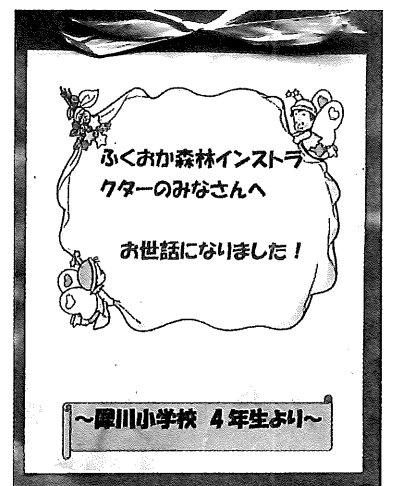 ふくおか森林インストラ
クターのみなさんへ
お世話になりました！
～犀川小学校 4年生より～